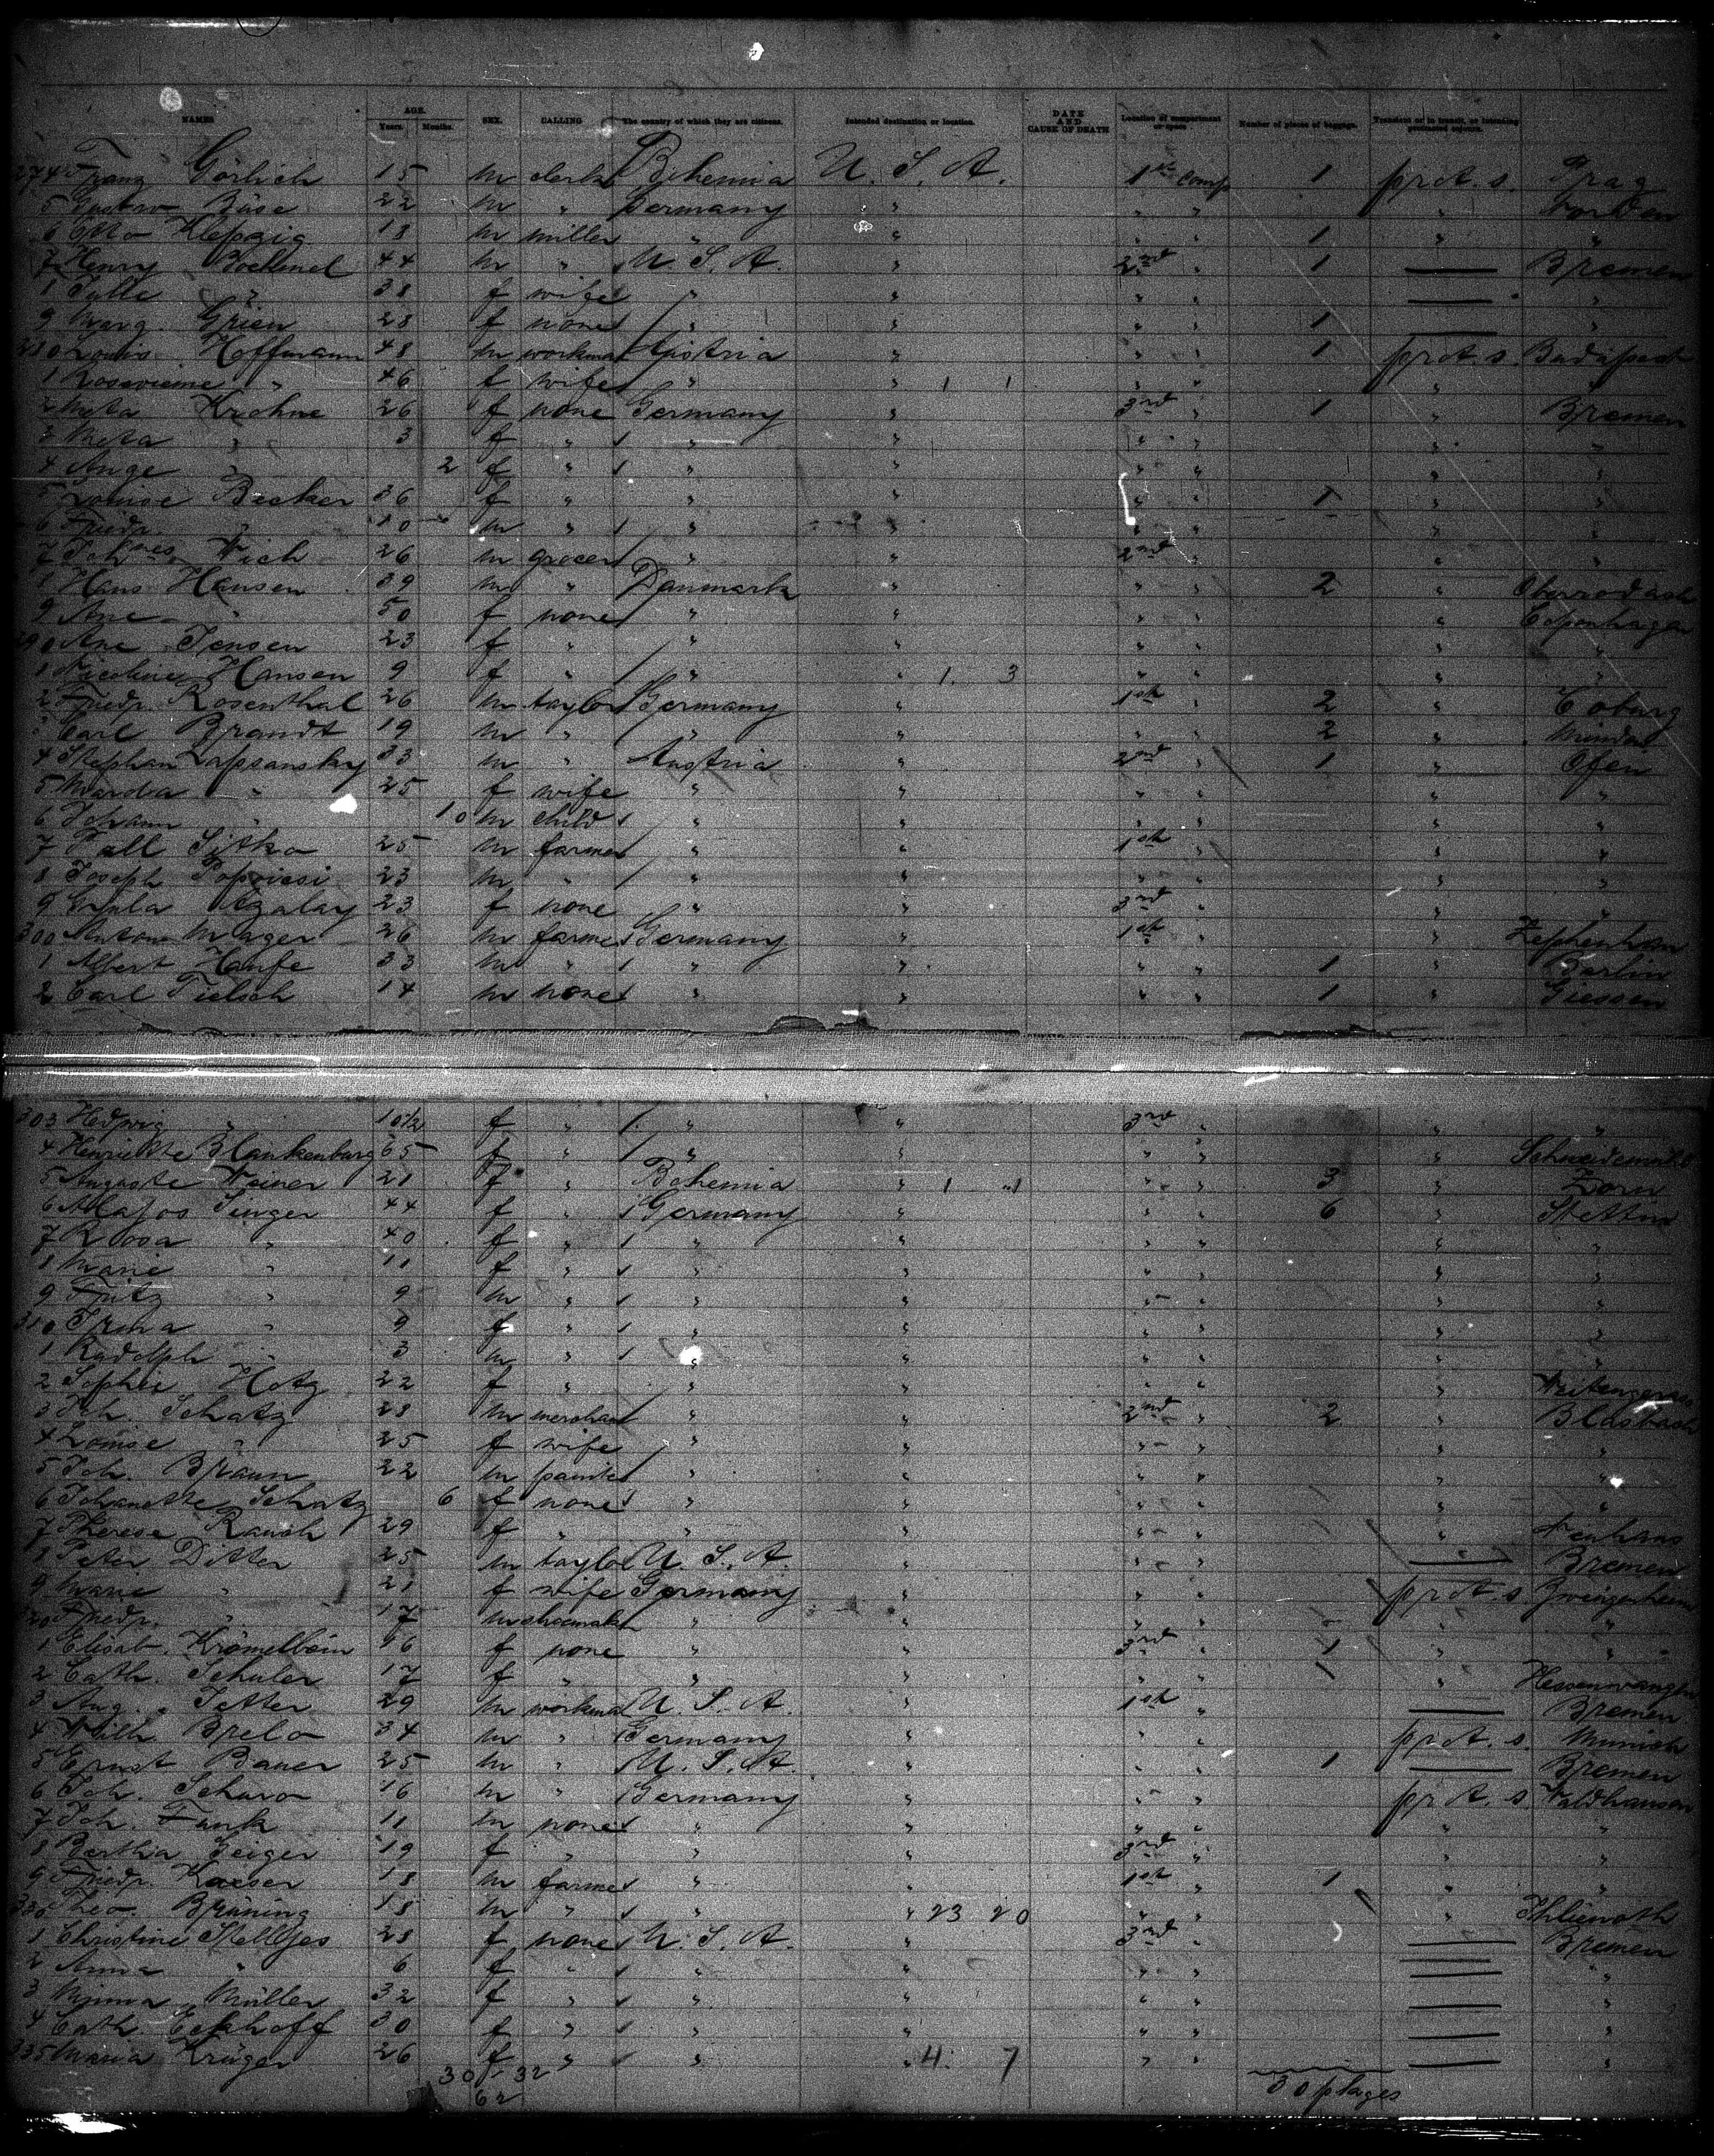 NAMES AGE. Years. Months. SEX. CALLING The country of which they are citizens. Intended destination or location. DATE AND CAUSE OF DEATH Location of compartment or space Number of pieces of baggage. Transient or in transit, or intending protracted sojourn.
274 Franz Görlich 15 m clerk Bohemia U. S. A. 1st comp 1 prot. s. Prag
5 Gustav Bäse 22 m " Germany " " " "
6 Otto Klepzig 18 m miller " " " " 1 " "
7 Henry 44 m " U. S. A. " 2nd " 1 — Bremen
8 " 38 f wife " " " " — "
9 Marg. Grien 28 f none " " " " 1 — "
280 Louis Hoffmann 48 m workman Austria " " " 1 prot. s. Budapest
1 " 46 f wife " " 1 1 " " " "
2 Meta Krohne 26 f none Germany " 3rd " 1 " Bremen
3 Meta " 3 f " " " " " " "
4 Ange " 2 f " " " " " " "
5 Louise Becker 36 f " " " " " 1 " "
6 Friedr. " 10 m " " " " " " "
7 Johnes Wich 26 m grocer " " 2nd " " "
8 Hans Hansen 39 m " Danmark " " " 2 " Oberrodach
9 Ane " 50 f none " " " " " Copenhagen
290 Ane Jensen 23 f " " " " " " "
1 Nicoline Hansen 9 f " " " 1. 3 " " " "
2 Friedr. Rosenthal 26 m taylor Germany " 1st " 2 " Coburg
3 Carl Brandt 19 m " " " " " 2 " Minden
4 Stephan Lapsansky 33 m " Austria " 2nd " 1 " Ofen
5 " 25 f wife " " " " " "
6 Johann " 10 m child " " " " " "
7 Pall Sitka 25 m farmer " " 1st " " "
8 Joseph Popovicsi 23 m " " " " " " "
9 23 f none " " 3rd " " "
300 Anton Mager 26 m farmer Germany " 1st " "
1 Albert Hanfe 33 m " " " " " 1 " Berlin
2 Carl Tielsch 14 m none " " " " 1 " Giessen
303 Hedwig " 10 1/2 f " " " 3rd " " "
4 Henriette Blankenburg 65 f " " " " " " Schneidemühl
5 Auguste Weiner 21 f " Bohemia " 1 1 " " 3 " Zorn
6 Singer 44 f " Germany " " " 6 " Stettin
7 Roosa " 40 f " " " " " " "
8 Marie " 11 f " " " " " " "
9 Fritz " 9 m " " " " " " "
310 Irma " 9 f " " " " " " "
1 Rudolph " 3 m " " " " " " "
2 Sophie Hotz 22 f " " " " " "
3 Joh. Schatz 28 m merchant " " 2nd " 2 " Blasbach
4 Louise " 25 f wife " " " " " "
5 Joh. Braun 22 m painter " " " " " "
6 Johanette Schatz 6 f none " " " " " "
7 Therese Rauch 29 f " " " " " "
8 Peter Ditter 25 m taylor U. S. A. " " " — Bremen
9 Marie " 21 f wife Germany " " " prot. s.
320 Friedr. " 17 m shoemaker " " " " " "
1 Elisab. Krömelbein f none " " 3rd " 1 " "
2 Cath. Schuler 17 f " " " " " 1 "
3 Aug. Jetter 29 m workman U. S. A. " 1st " — Bremen
4 Wilh. Brelo 34 m " Germany " " " prot. s. Munich
5 Ernst Bauer 25 m " U. S. A. " " " 1 — Bremen
6 Joh. 16 m " Germany " " " prot. s. Waldhausen
7 Joh. Funk 11 m none " " " " " "
8 Bertha Geiger 19 f " " " 3rd " " "
9 Friedr. Kaeser 18 m farmer " " 1st " 1 " "
330 Theo. Brüning 18 m " " " 23 20 " " "
1 Christine Stelljes 28 f none U. S. A. " 3rd " — Bremen
2 Anna " 6 f " " " " " — "
3 Minna Müller 32 f " " " " " — "
4 Cath. Eckhoff 30 f " " " " " — "
335 Maria Krüger 26 f " " " 4. 7 " " — "
30 - 32
62
30 plages